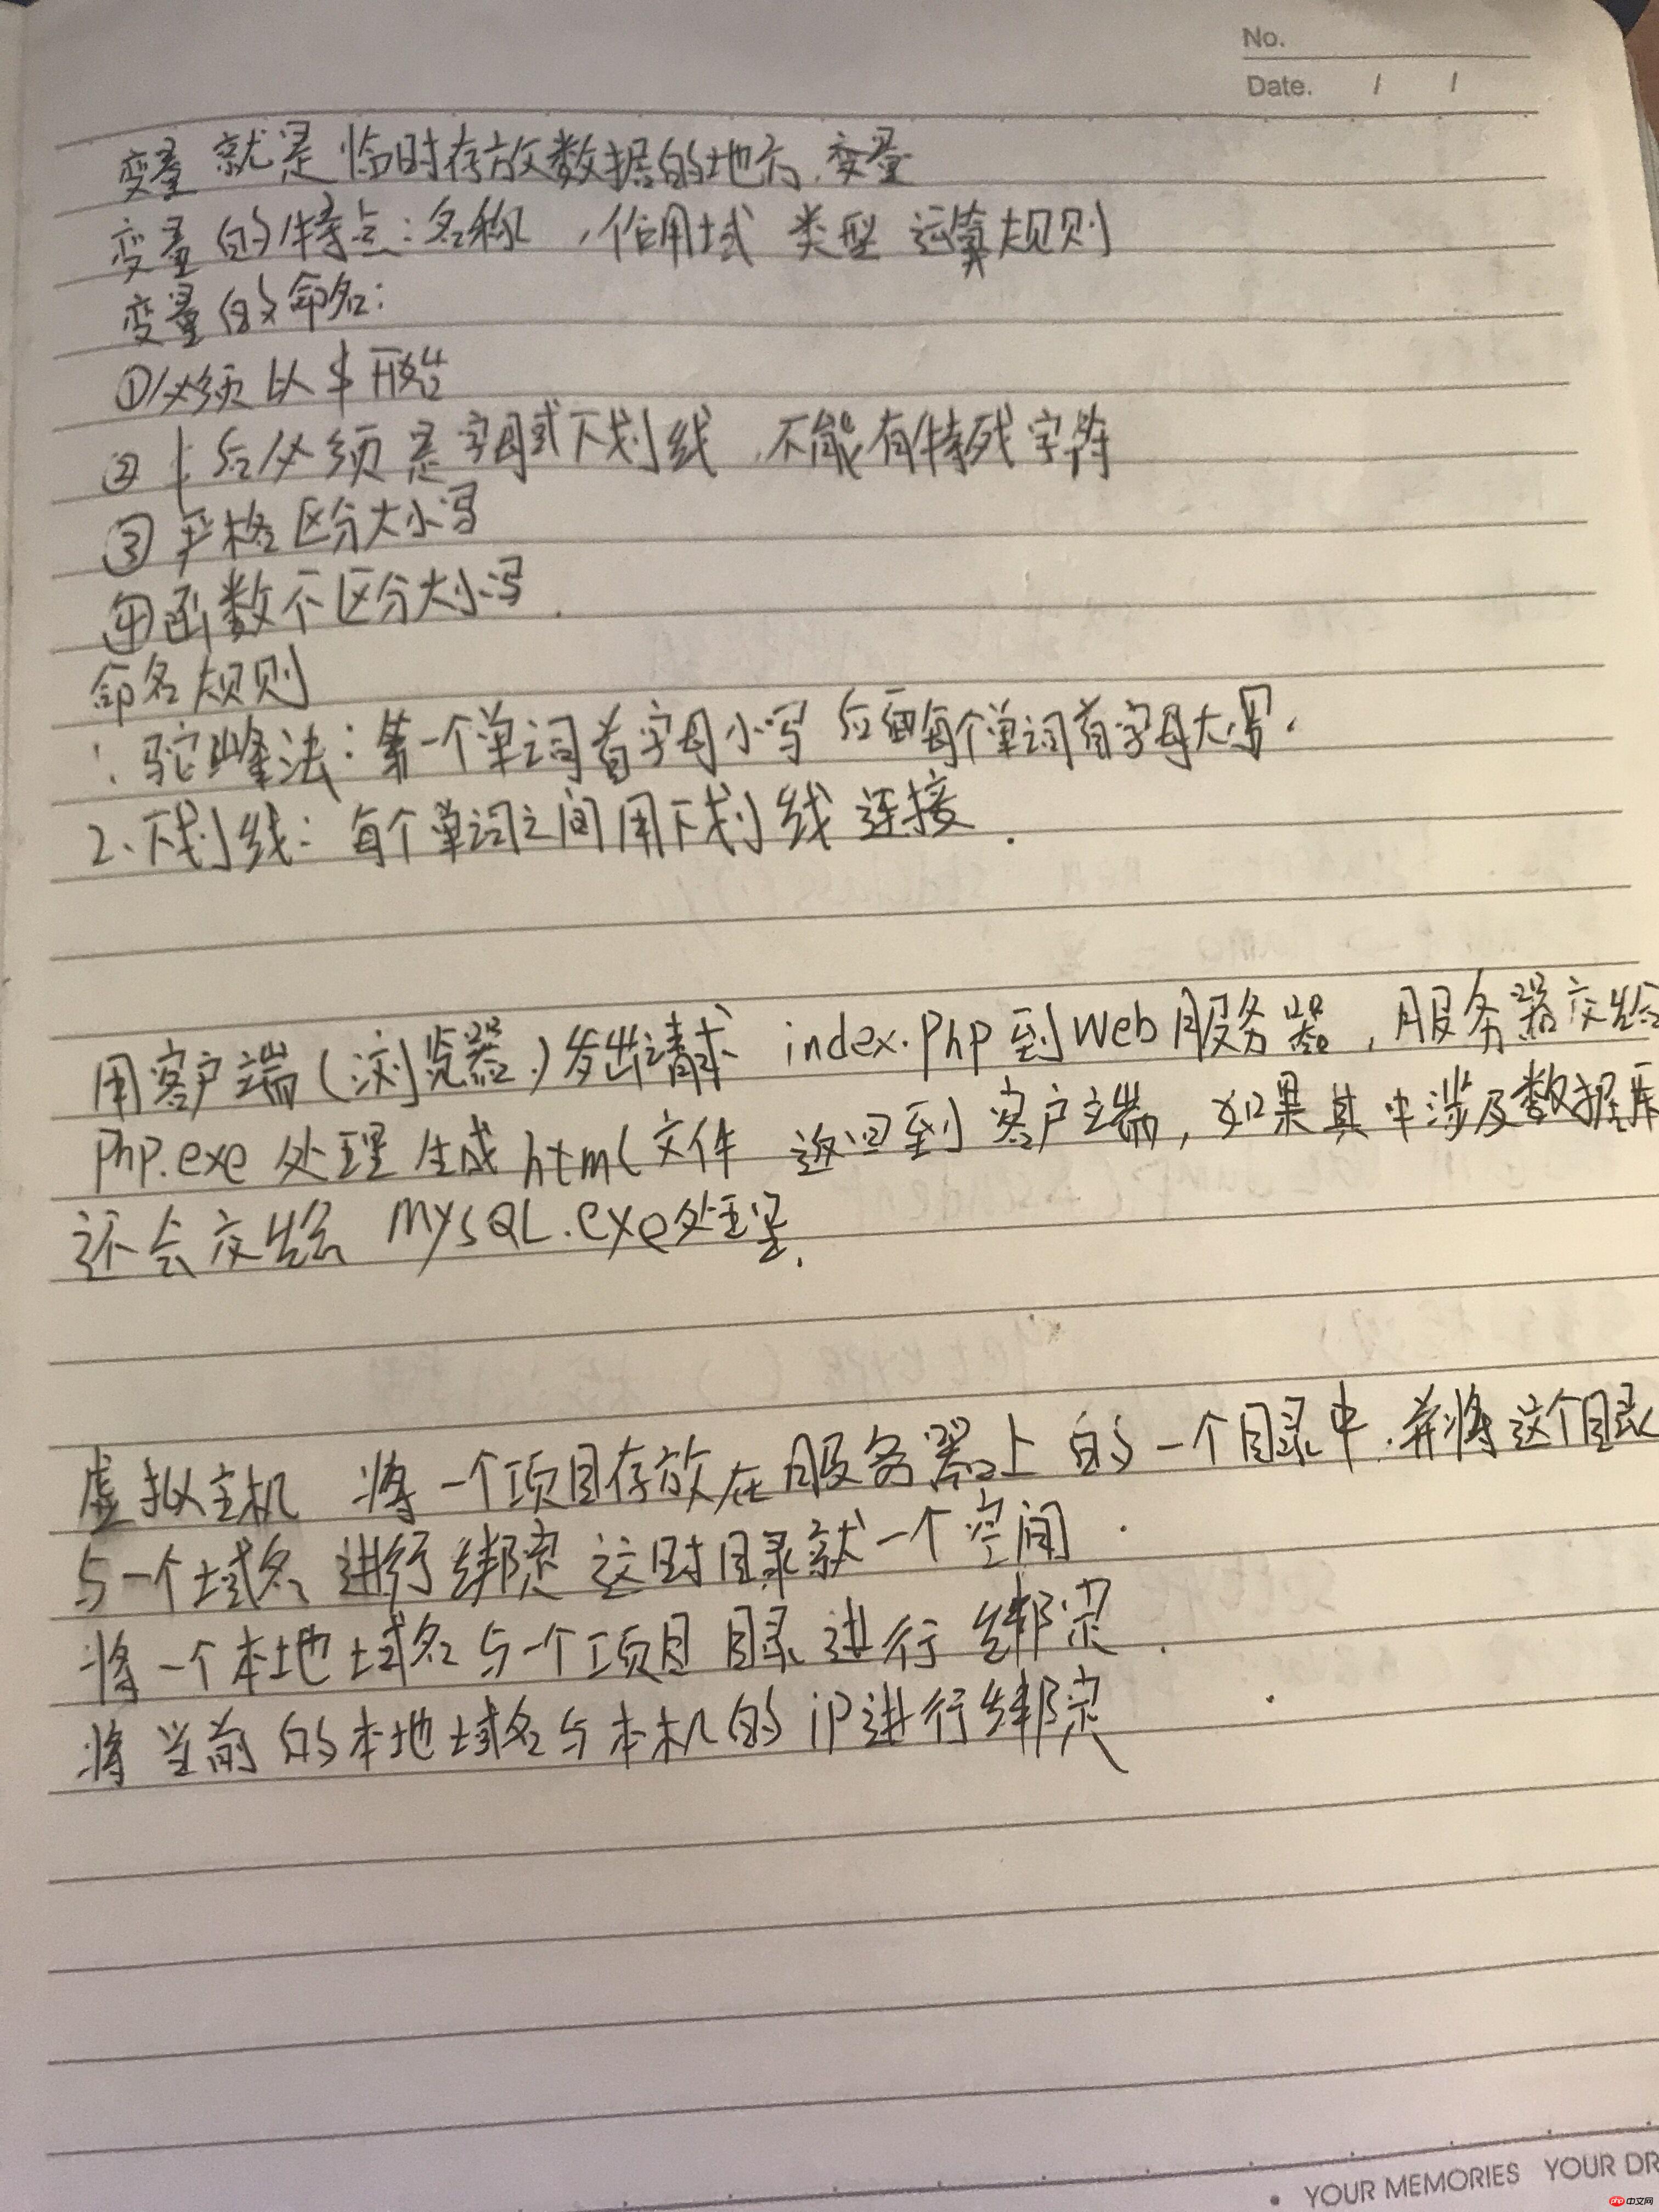 No.
Date. / /
变量 就是 临时存放数据的地方.变量
变量 的特点:名称 ,作用域 类型 运算规则
变量 的命名:
①必须以 $ 开始
② $ 后必须是字母或下划线 ,不能有特殊字符
③ 严格区分大小写
④函数不区分大小写.
命名规则
1. 驼峰法:第一个单词首字母小写 后面每个单词首字母大写.
2、下划线:每个单词之间用下划线 连接.
用客户端(浏览器)发出请求 index.php到Web服务器,服务器交给
php.exe 处理 生成 html文件 返回到客户端,如果其中涉及数据库
还会交给 MySQL.exe处理.
虚拟主机 将一个项目存放在服务器上 的一个目录中.并将这个目录
与一个域名 进行绑定 这时目录就一个空间.
将一个本地域名与一个项目 目录进行 绑定.
将当前的本地域名与本机的 ip进行绑定
YOUR MEMORIES YOUR DR
php 中文网